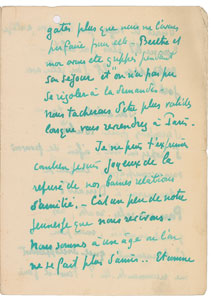 gates plus que nous ne l'avons
pu faire pour elle. Berthe et
moi avons été grippés pendant
son séjour et "on n'a pas pu
se rigoler à la demande"
nous tacherons d'être plus valides
lorsque vous reviendrez à Paris.
Je ne puis t'exprimer
combien je suis joyeux de la
de nos bonnes relations
d'amitié. - C'est un peu de notre
jeunesse que nous revivons.
Nous sommes à un age où l'on
ne se fait plus d'amis... Et comme